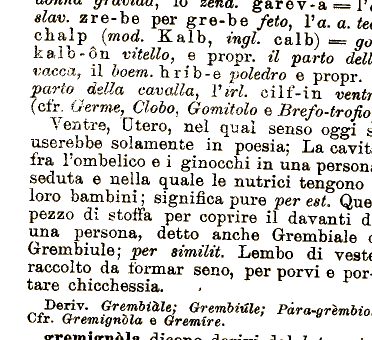 donna gravida, lo zend. garev-a = l'
slav. zre-be per gre-be feto, l'a. a. te
chalp (mod. Kalb, ingl. calb) = go
kalb-ôn vitello, e propr. il parto dell
vacca, il boem. hrib-e poledro e propr.
parto della cavalla, l'irl. cilf-in ventr
(cfr. Germe, Clobo, Gomitolo e Brefo-trofio
Ventre, Utero, nel qual senso oggi s
userebbe solamente in poesia; La cavit
fra l'ombelico e i ginocchi in una person
seduta e nella quale le nutrici tengono
loro bambini; significa pure per est. Que
pezzo di stoffa per coprire il davanti d
una persona, detto anche Grembiale o
Grembiule; per similit. Lembo di veste
raccolto da formar seno, per porvi e por-
tare chicchessia.
Deriv. Grembiàle; Grembiúle; Pàra-grèmbio
Cfr. Gremignòla e Gremíre.
gremignòla dicono derivi dal